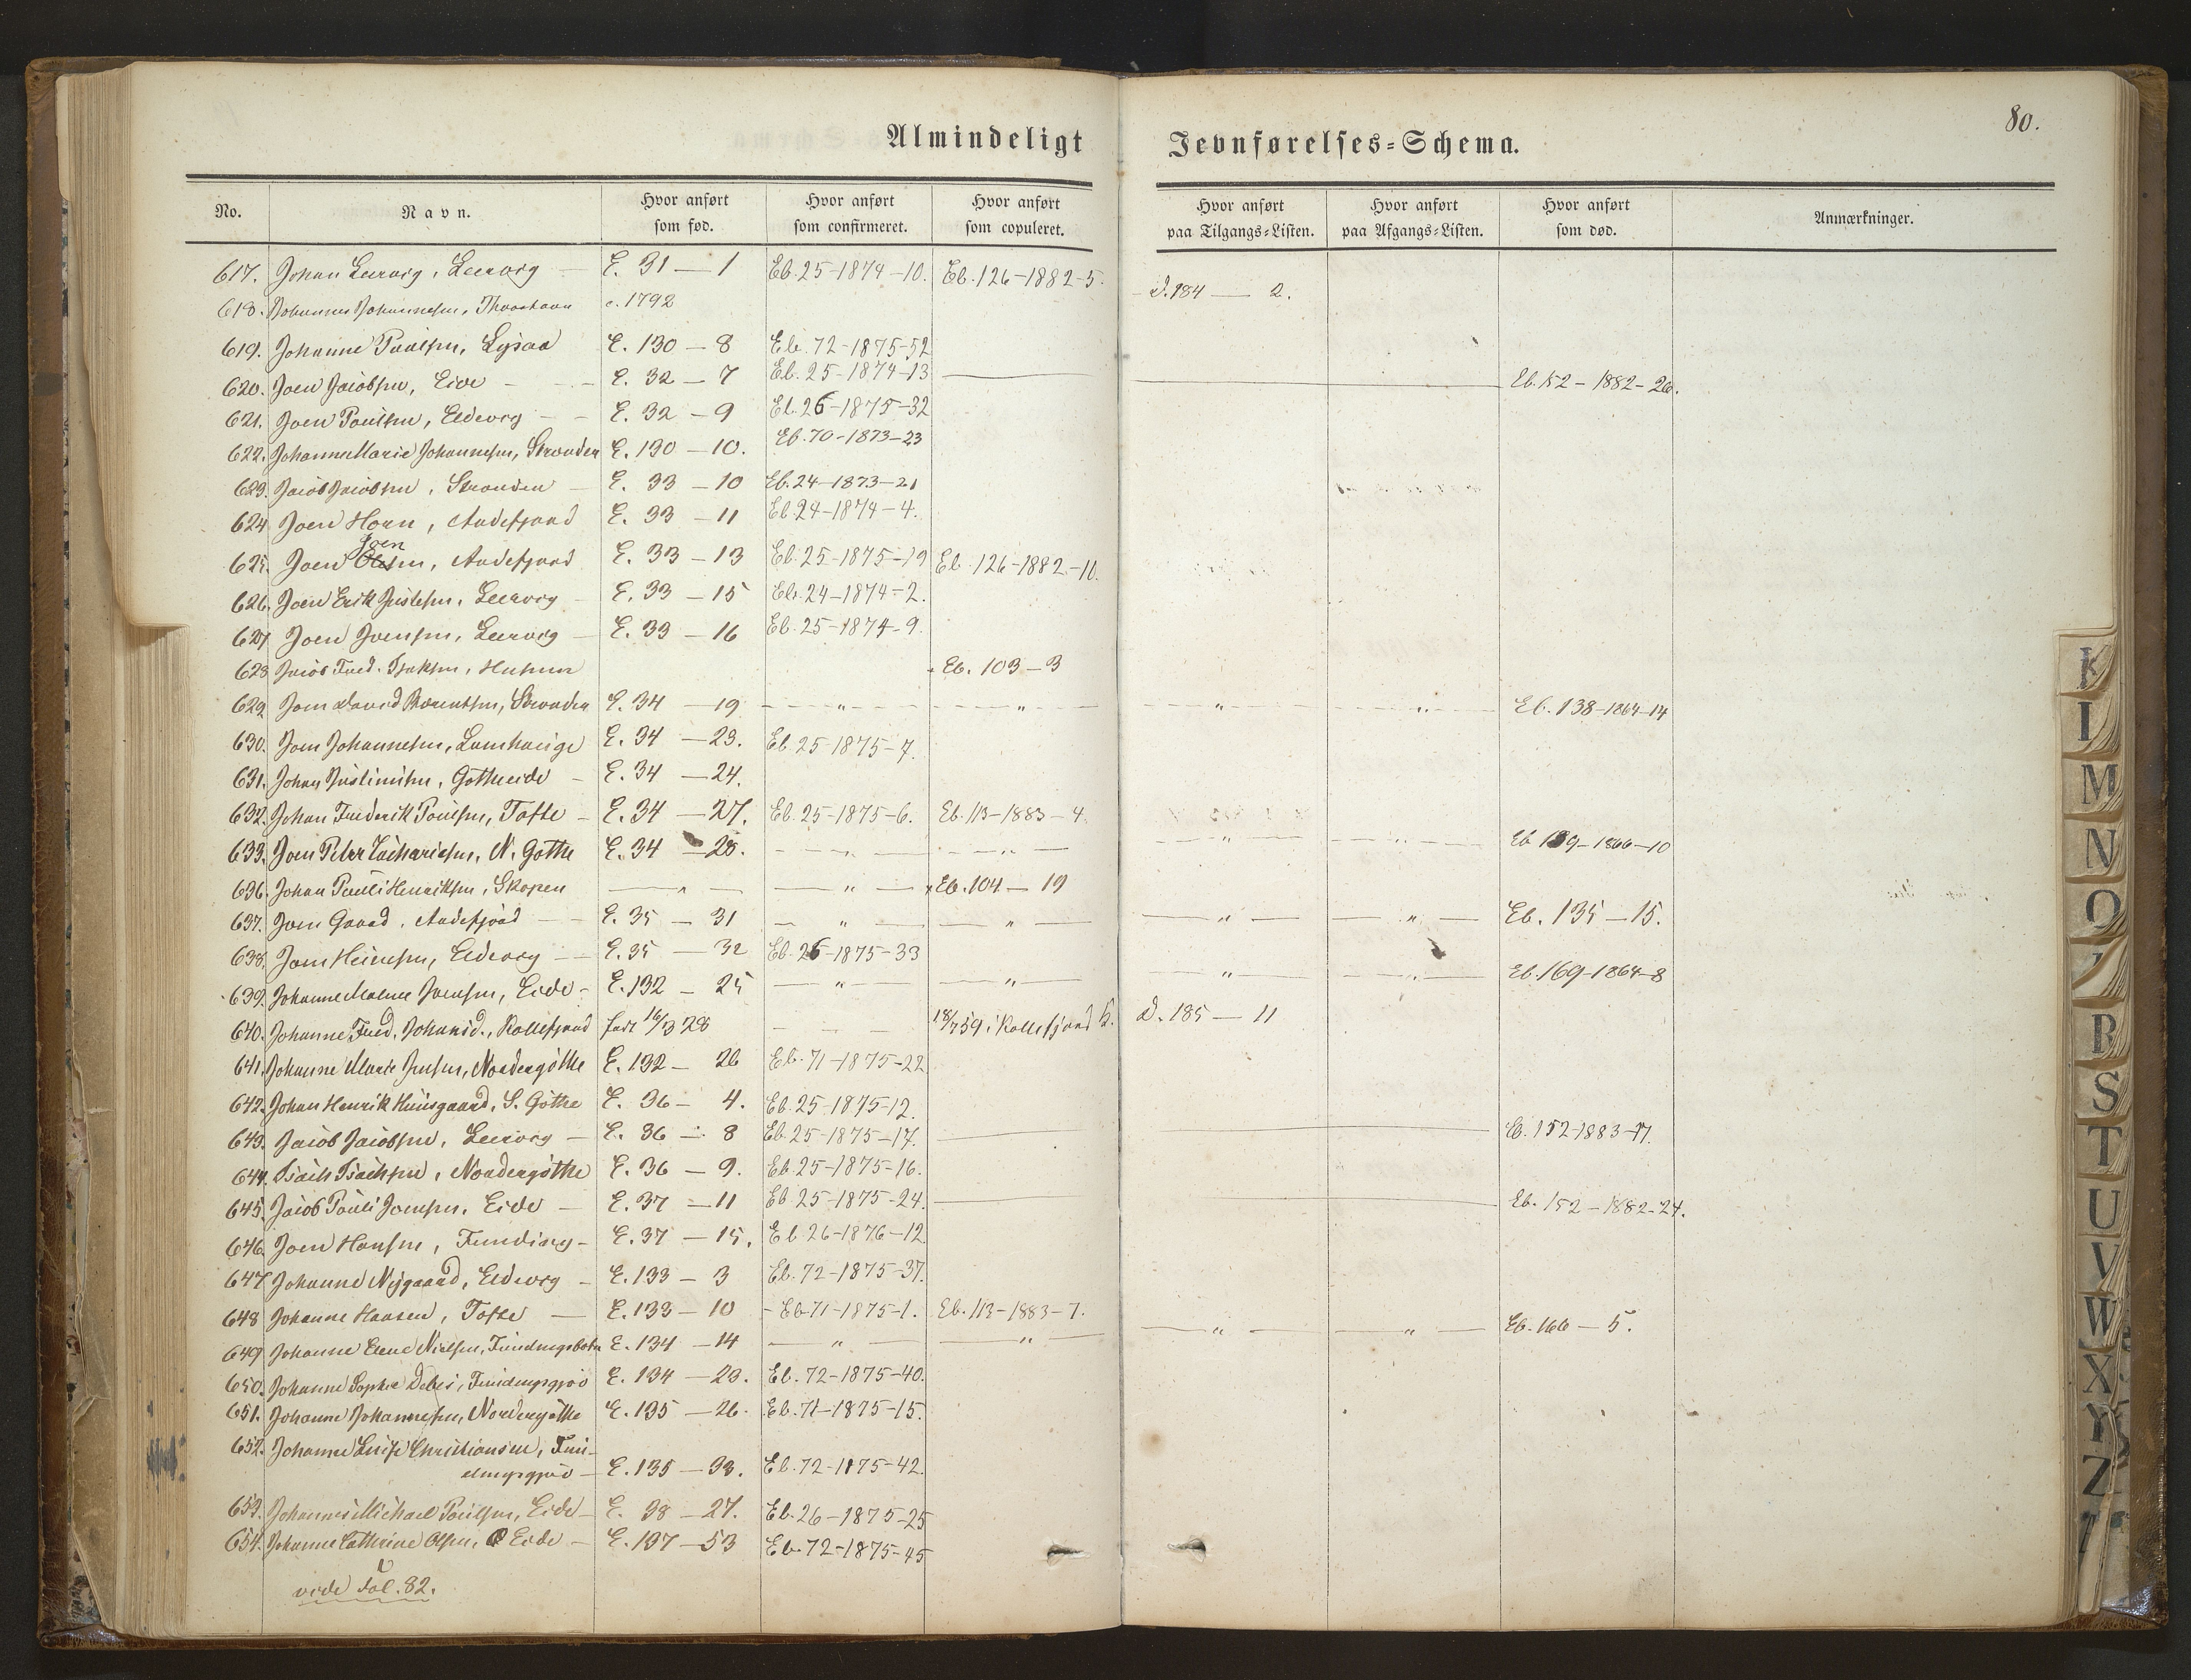 80.
Almindeligt Jevnførelses=Schema.
No. Navn. Hvor anført som fød. Hvor anført som confirmeret. Hvor anført som copuleret. Hvor anført paa Tilgangs=Listen. Hvor anført paa Afgangs=Listen. Hvor anført som død. Anmærkninger.
617. Johan Leervig, Leervig — E. 31 — 1 Eb. 25-1874-10. Eb. 126-1882-5.
618. Johannes Johannesen, Thorshavn c. 1792 d. 184 — 2.
619. Johanne Paulsen, E. 130 — 8 Eb. 72-1875-52
620. Joen Jacobsen, Eide - - - E. 32 — 7 Eb. 25-1874-13 — Eb. 152-1882-26.
621. Joen Poulsen, Eldevig - - E. 32 — 9 Eb. 26-1875-32
622. Johanne Marie Johannesen, Stranden E. 130 — 10. Eb. 70-1873-23
623. Jacob Jacobsen, Stranden — E. 33 — 10 Eb. 24-1873-21
624 Joen Horn, Andefjord E. 33 — 11 Eb. 24-1874-4.
Joen
625. Joen Olesen, Andefjord E. 33 — 13 Eb. 25-1875-19 Eb. 126-1882-10.
626. Joen Erik Justesen, Leervig E. 33 — 15 Eb. 24-1874-2.
627 Joen Joensen, Leervig — E. 33 — 16 Eb. 25-1874-9.
628 Jacob Fred. Isaksen, Husum Eb. 103-3
629 Joen David Thorentsen, Stranden E. 34 — 19 — " — — " — — " — — " — Eb. 138-1864-14
630. Joen Johannesen, Lamhauge E. 34 — 23. Eb 25-1875-7.
631. Johan Justinusen, Gøtheeide — E. 34 — 24.
632. Johan Frederik Poulsen, Tofte — E. 34 — 27. Eb. 25-1875-6. Eb. 113-1883-4.
633. Joen Peter Zachariasen, N. Gøthe E. 34 — 28. — " — — " — — " — — " — Eb 139-1866-10
636. Johan Pauli Henriksen, Skopen — " — — " — Eb. 104 — 19
637. Joen Gaard, Andefjord — E. 35 — 31 — " — — " — — " — — " — Eb. 135-15.
638. Joen Heinesen, Eldevig — E. 35 — 32 Eb. 26-1875-33
639. Johanne Malene Joensen, Eide - E. 132 — 25 — " — — " — — " — — " — Eb. 169-1864-8
640. Johanne Fred. Johansd., Kollefjord født 16/3 28 — — — 18/7 59 i Kollefjord K. d. 185 — 11
641. Johanne Marie Jensen, Nordergøthe E. 132 — 26 Eb. 71-1875-22
642. Johan Henrik Huusgaard, S. Gøthe E. 36 — 4. Eb. 25-1875-12.
643. Jacob Jacobsen, Leervig — E. 36 — 8 Eb. 25-1875-17. — Eb. 152-1883-17.
644. Isach Isachsen, Nordergøthe E. 36 — 9. Eb. 25-1875-16.
645. Jacob Pauli Joensen, Eide — E. 37 — 11 Eb 25-1875-24. — Eb. 152-1882-24.
646. Joen Hansen, Funding - E. 37 — 15. Eb. 26-1876-12
647 Johanne Nygaard, Eldevig — E. 133 — 3 Eb. 72-1875-37.
648 Johanne Hansen, Tofte — E. 133 — 10 - Eb 71-1875-1. Eb. 113-1883-7.
649 Johanne Elene Nielsen, Fundingsbotn E. 134 — 14 — " — — " — — " — — " — Eb. 166-5.
650. Johanne Sophie Debes, Fundingsgjov E. 134 — 23. Eb. 72-1875-40.
651. Johanne Johannesen, Nordergøthe E. 135 — 26. Eb. 71-1875-15.
652. Johanne Luise Christiansen, Fun-
dingsgjov — E. 135 — 33. Eb. 72-1875-42.
653. Johannes Michael Poulsen, Eide — E. 38 — 27. Eb. 26-1875-25
654. Johanne Cathrine Olsen, Eide — E. 137 — 53 Eb. 72-1875-45
vide Fol. 82.
K
L
M
N
O
R
S
T
U
V
W
X
Y
Z